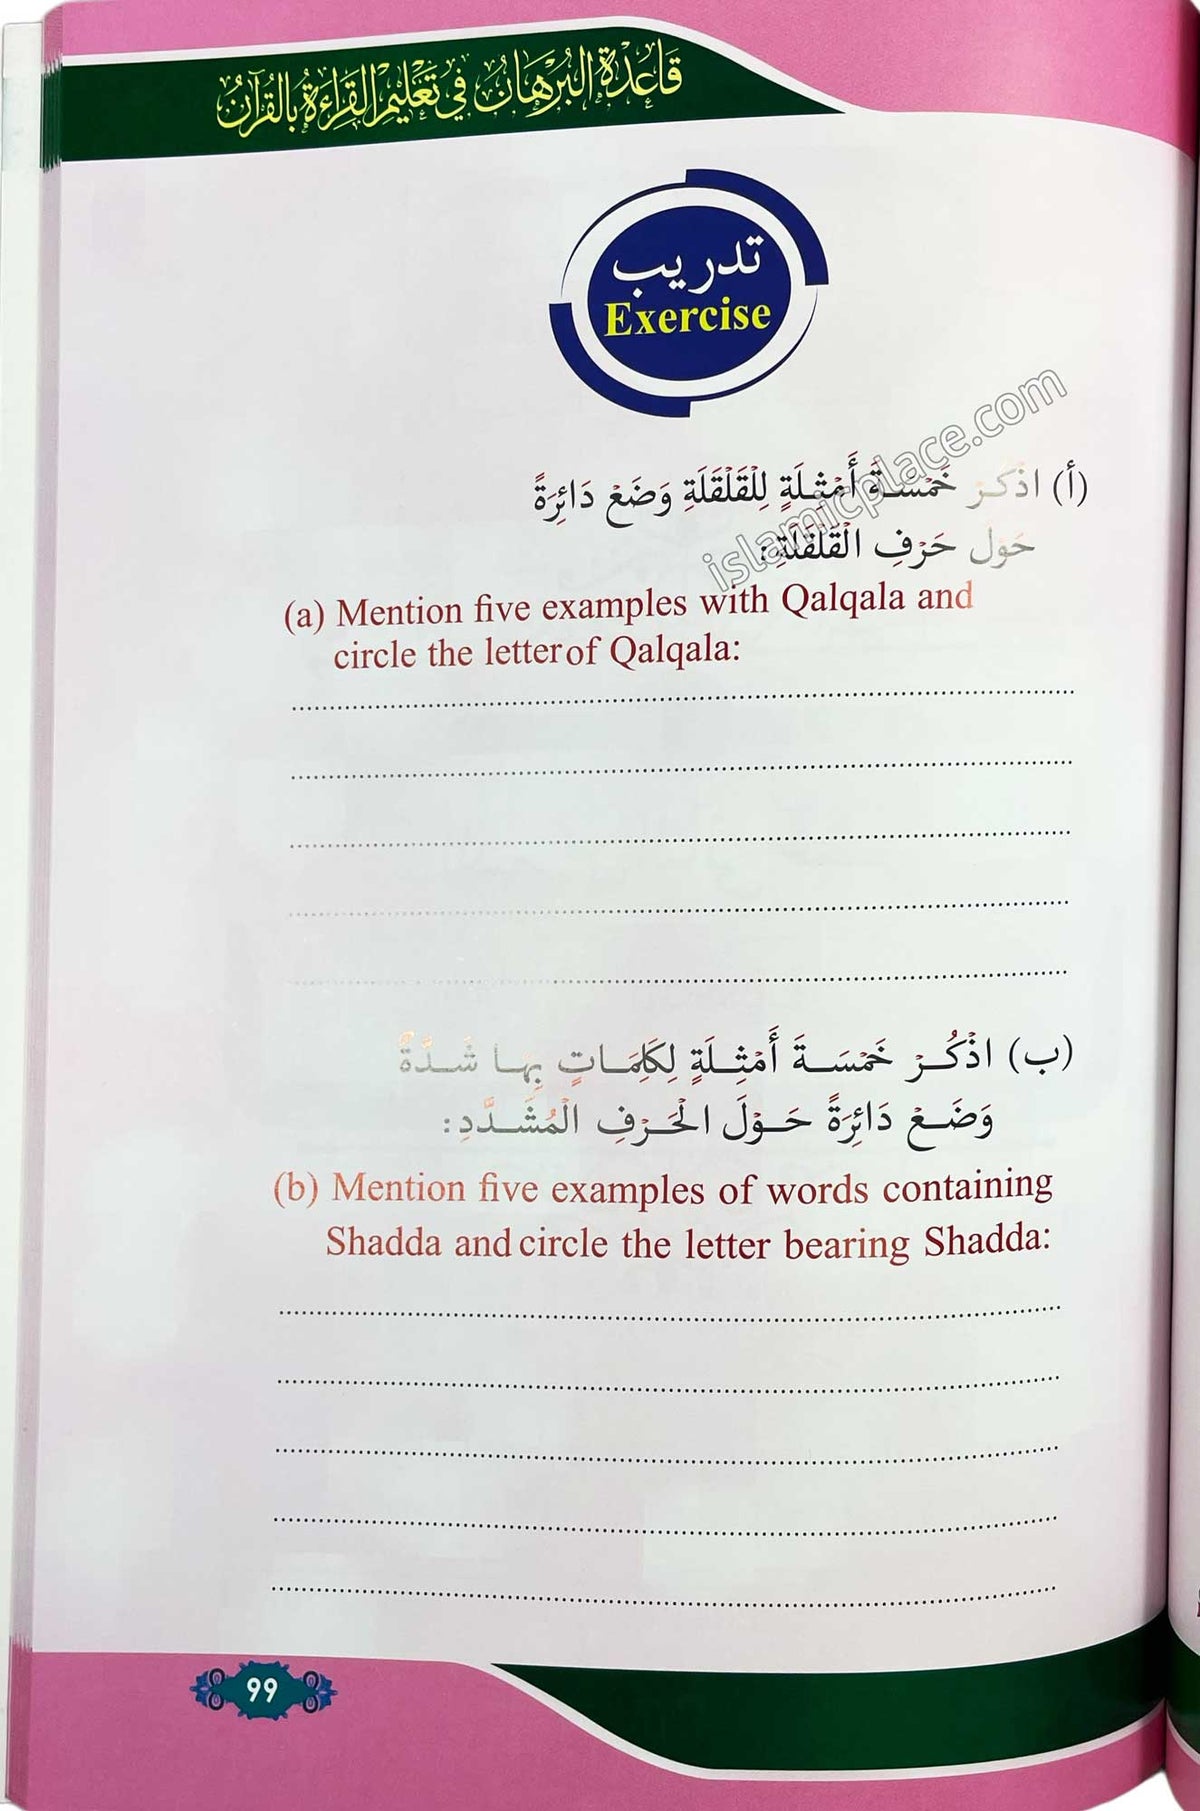 قَاعِدَةُ الْبُرْهَانُ فِي تَعْلِيمِ الْقِرَاءَةُ بِالْقُرْآنُ
تدريب
Exercise
(أ) اذْكُرْ خَمْسَةَ أَمْثِلَةٍ لِلْقَلْقَلَةِ وَضَعْ دَائِرَةً
حَوْل حَرْفِ الْقَلْقَلَةِ:
islamicplace.com
(a) Mention five examples with Qalqala and
circle the letter of Qalqala:
(ب) اذْكُرْ خَمْسَةَ أَمْثِلَةٍ لِكَلِمَاتٍ بِهَا شَدَّةٌ
وَضَعْ دَائِرَةً حَوْلَ الْحَرْفِ الْمُشَدَّدِ:
(b) Mention five examples of words containing
Shadda and circle the letter bearing Shadda:
99